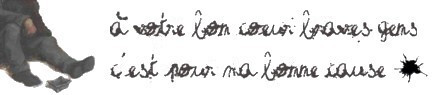 à votre bon coeur braves gens
c'est pour ma bonne cause